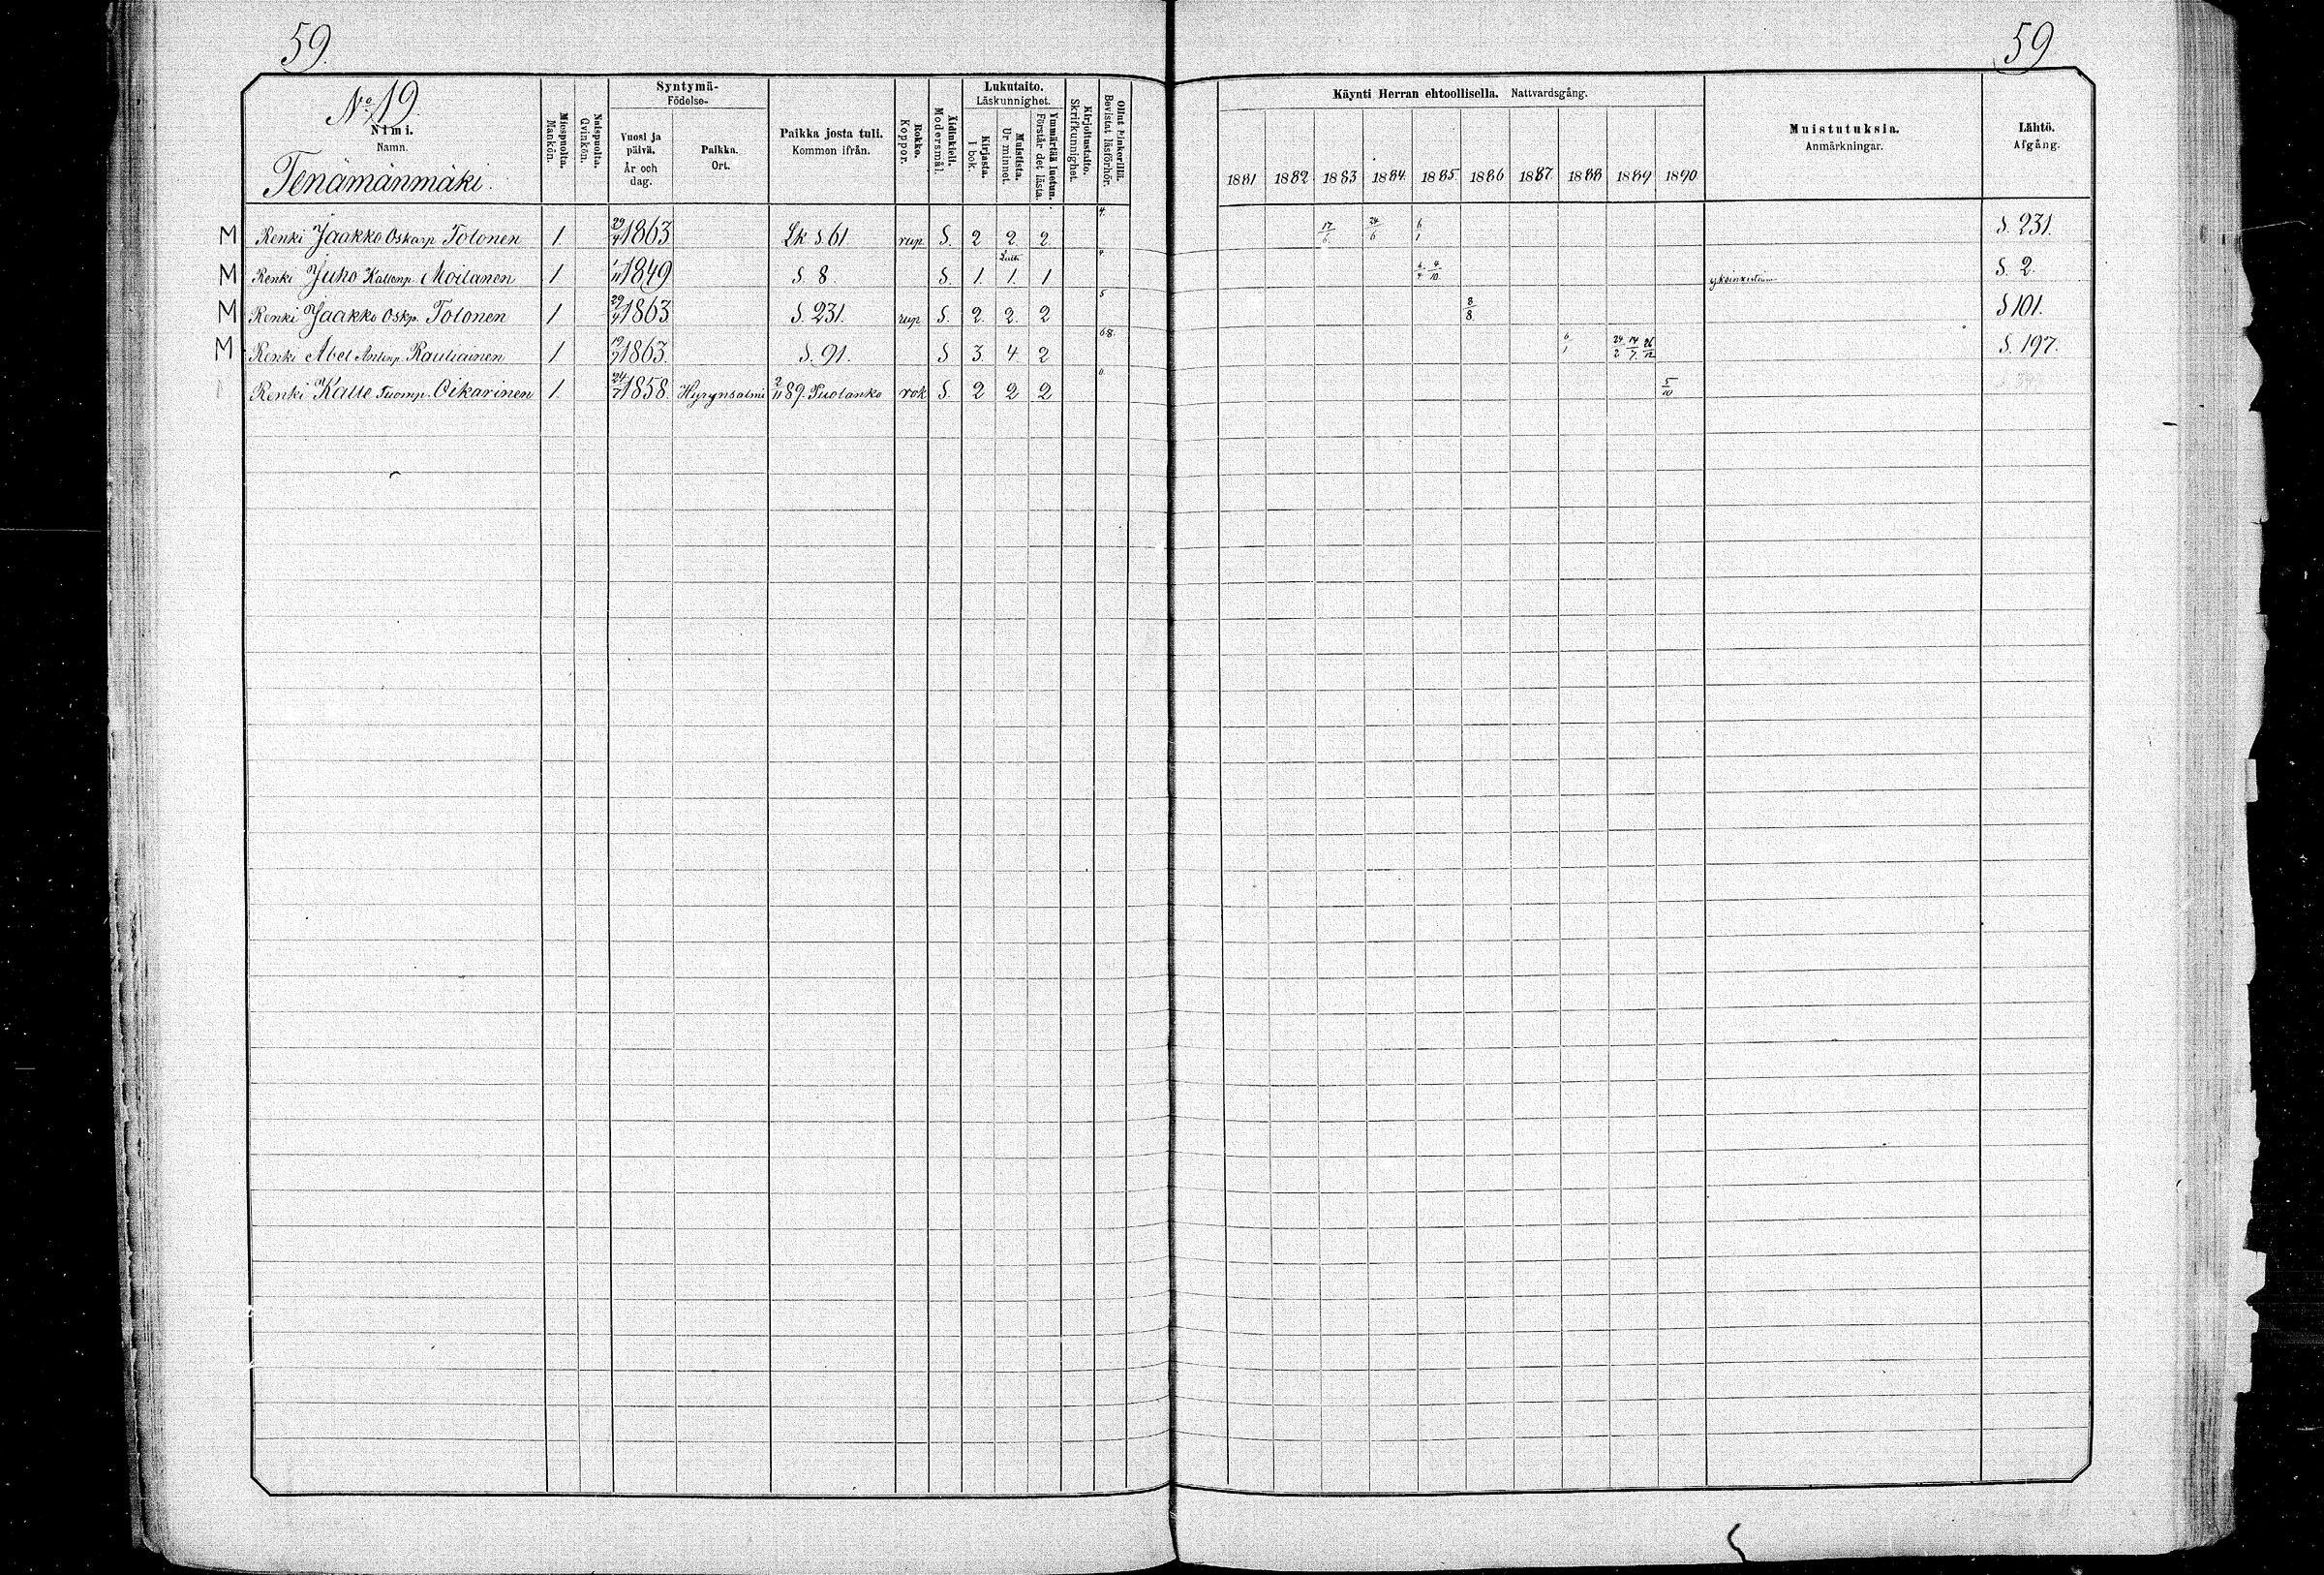 59.
59
No 19.
Nimi.
Namn.
Tenämänmäki.
Miespuolta.
Mankön.
Naispuolta.
Qvinkön.
Syntymä-
Födelse-
Vuosi ja
päivä.
År och
dag.
Paikka.
Ort.
Paikka josta tuli.
Kommen ifrån.
Rokko.
Koppor.
Äidinkieli.
Modersmål.
Lukutaito.
Läskunnighet.
Kirjasta.
I bok.
Muistista.
Ur minnet.
Ymmärtää luetun.
Förstår det lästa.
Kirjoitustaito.
Skrifkunnighet.
Ollut kinkerillä.
Bevistat läsförhör.
Käynti Herran ehtoollisella. Nattvardsgång.
1881 1882 1883 1884 1885 1886 1887 1888 1889 1890
Muistutuksia.
Anmärkningar.
Lähtö.
Afgång.
M Renki Jaakko Oskarp Tolonen 1. 29/4 1863 Lk S. 61 rup. S. 2 2. 2. 4. 17/6 24/6 6/1 S. 231.
M Renki Juho Kallenp. Moilanen 1 1/11 1849 S. 8. S. 1. 1. 1 4/10 S. 2.
M Renki Jaakko Oskp. Tolonen 1 29/4 1863 S. 231. rup S. 2. 2. 2 5 8/8 S 101.
M Renki Abel Anttinp. Rautiainen 1 1863. S. 91. S 3. 4. 2 6.8. 6/1 24/2 14/7 26/12 S. 197.
Renki Kalle Tuomp. Oikarinen 1. 24/7 1858. Hyrynsalmi 2/11 89. Puolanko rok S. 2 2 2 0. 5/10